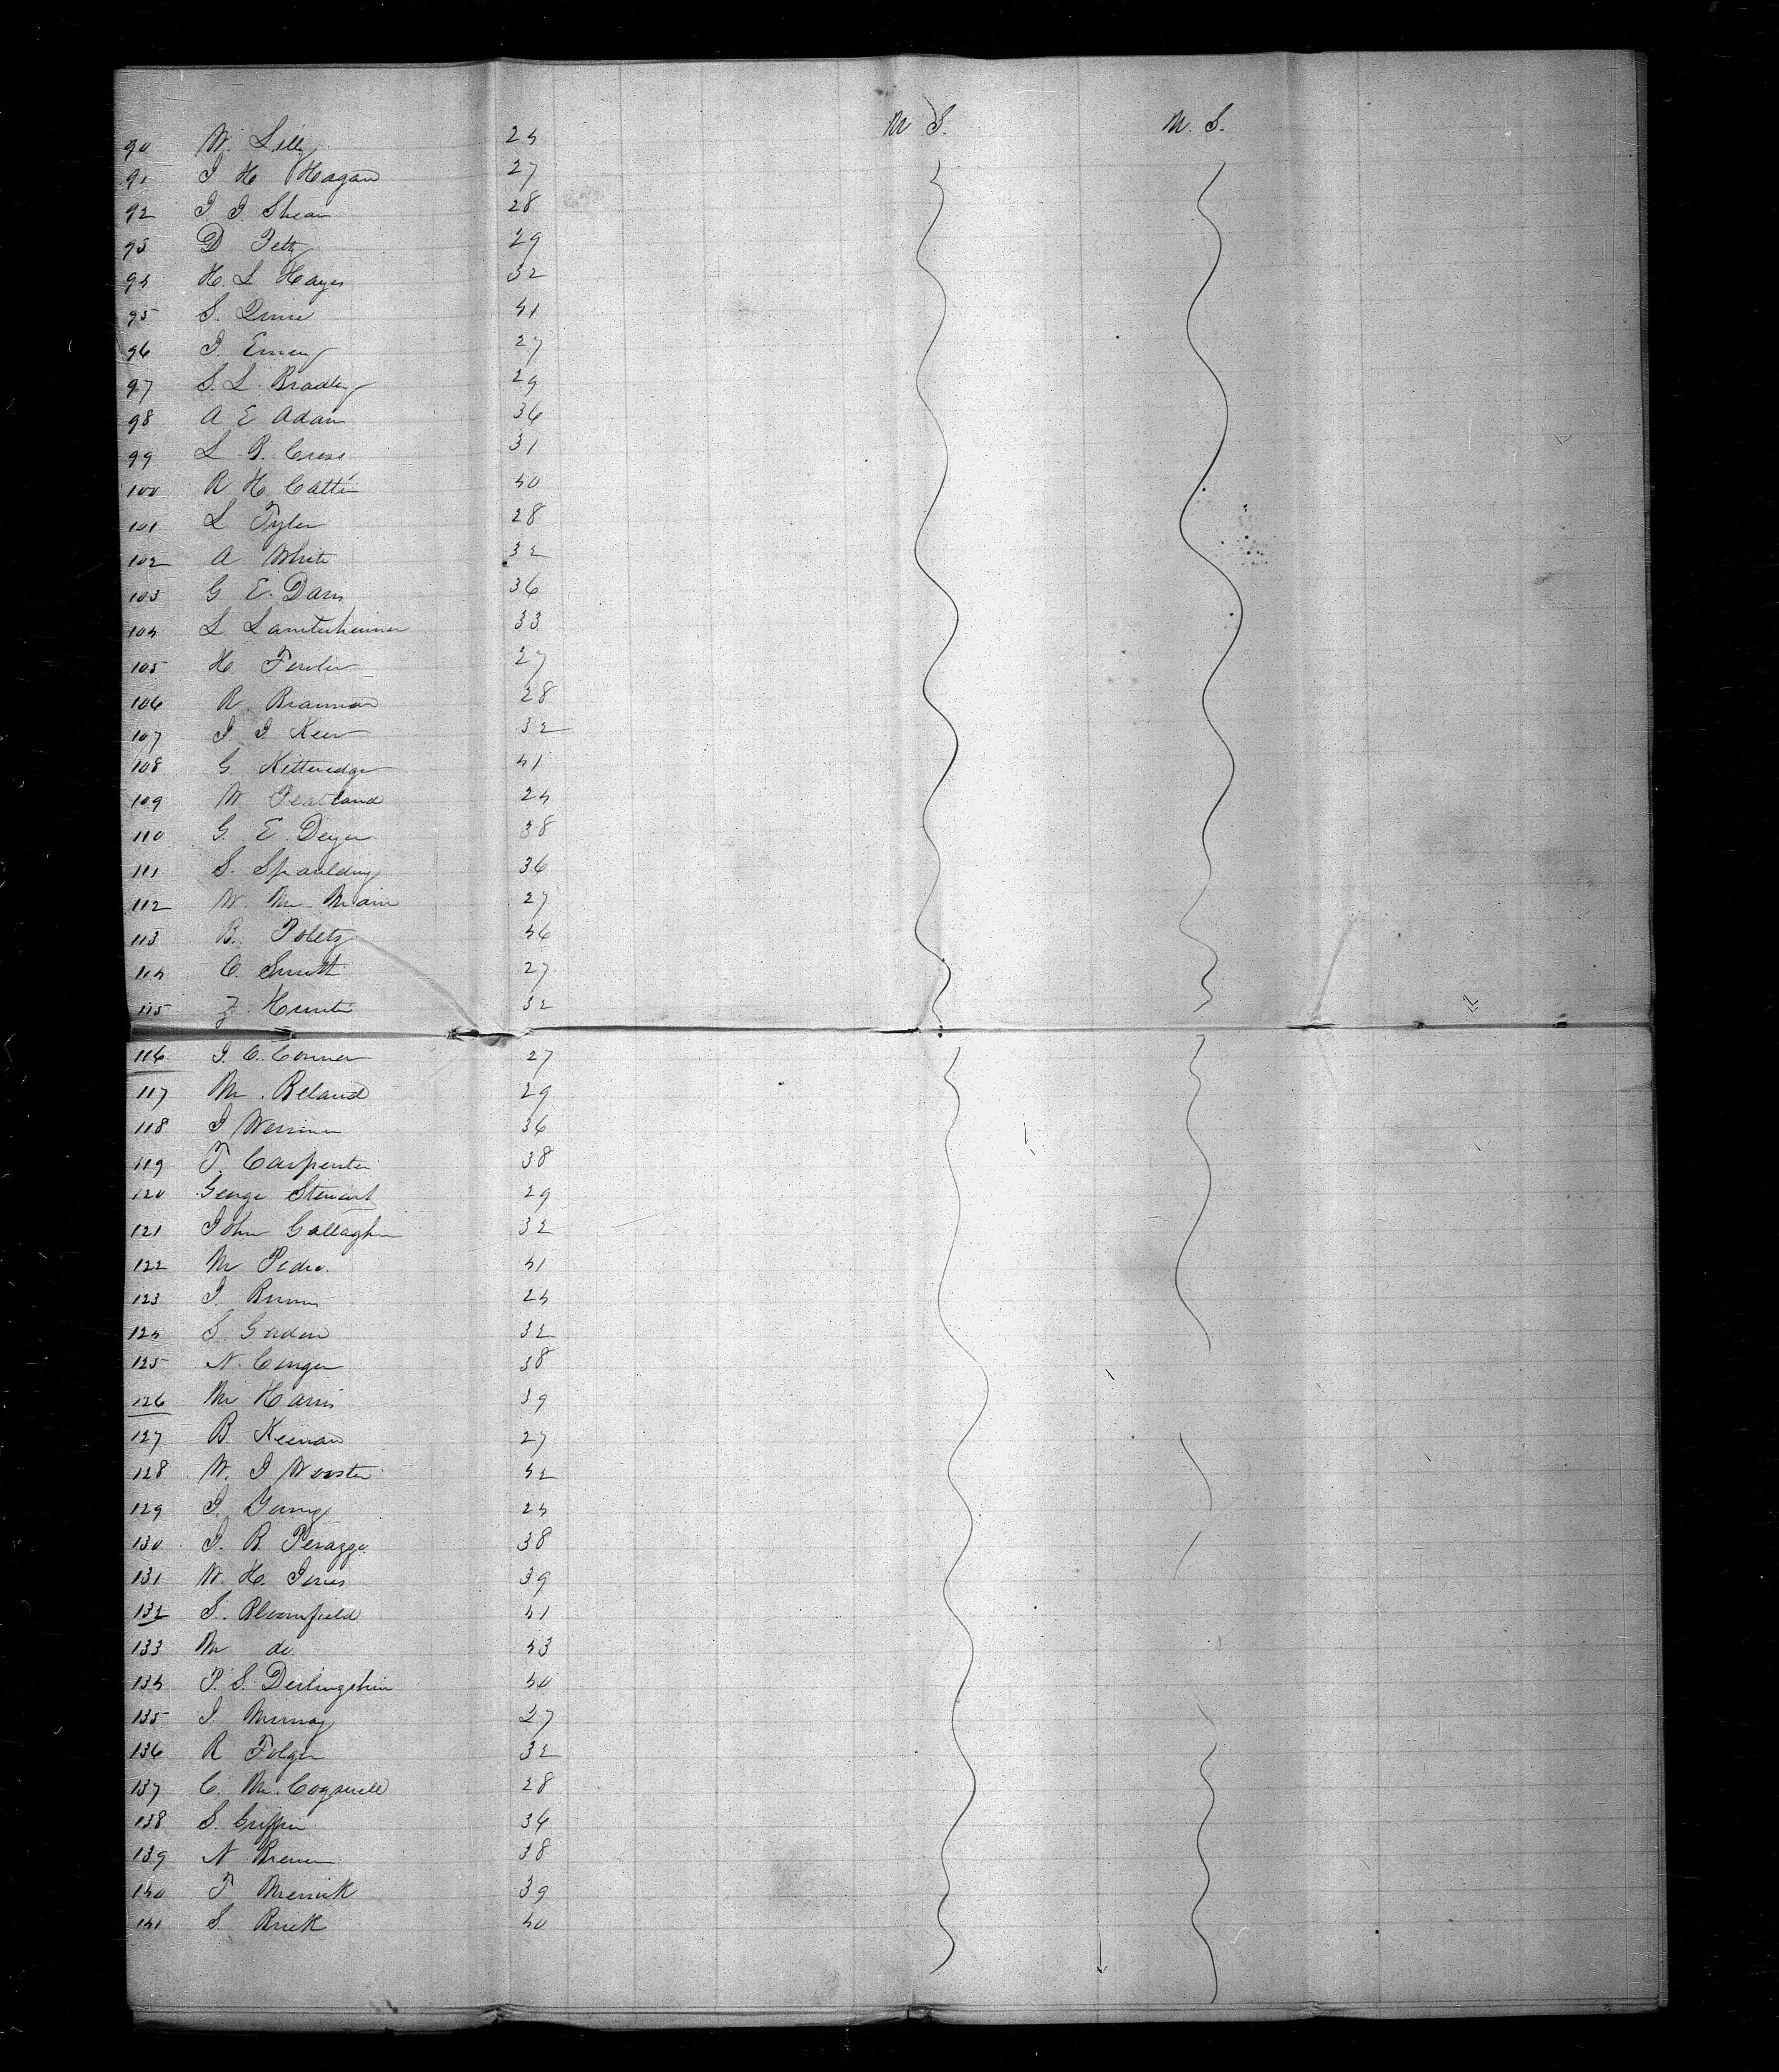 U. S. U. S.
90 W. Lilly 24
91 J H Hagan 27
92 J. J. Shear 28
93 D Petty 29
94 H. L Hayes 32
95 S. 41
96 J. Emery 27
97 S. L. Bradley 29
98 A E Adam 36
99 L R. Cross 31
100 R H. Cattin 40
101 L Tyler 28
102 A White 32
103 G E. Davis 36
104 L 33
105 H. Fowler 27
106 R. Brannan 28
107 J J Keer 32
108 G Kitteredge 41
109 W. 24
110 G. E. Deyer 38
111 S. Spaulding 36
112 W. M. Main 27
113 B. Poletz 46
114 C. Smith 27
115 Z. Hunter 32
116 J. C. Conner 27
117 M. Beland 29
118 J 36
119 T. Carpenter 38
120 George Stewart 29
121 John Gallagher 32
122 M Pedro. 41
123 J. 24
124 S. Gordon 32
125 N. Conger 38
126 M Harris 39
127 B. Keenan 27
128 W. J Wooster 42
129 J. Young 24
130 J. B Perazzo 38
131 W. H. Jones 39
132 S. Bloomfield 41
133 M do. 43
134 P. S. 40
135 J. Murray 27
136 R Folger 32
137 C. M. Cogswell 28
138 S. Griffin 34
139 N 38
140 T Merrick 39
141 S. Brick 40